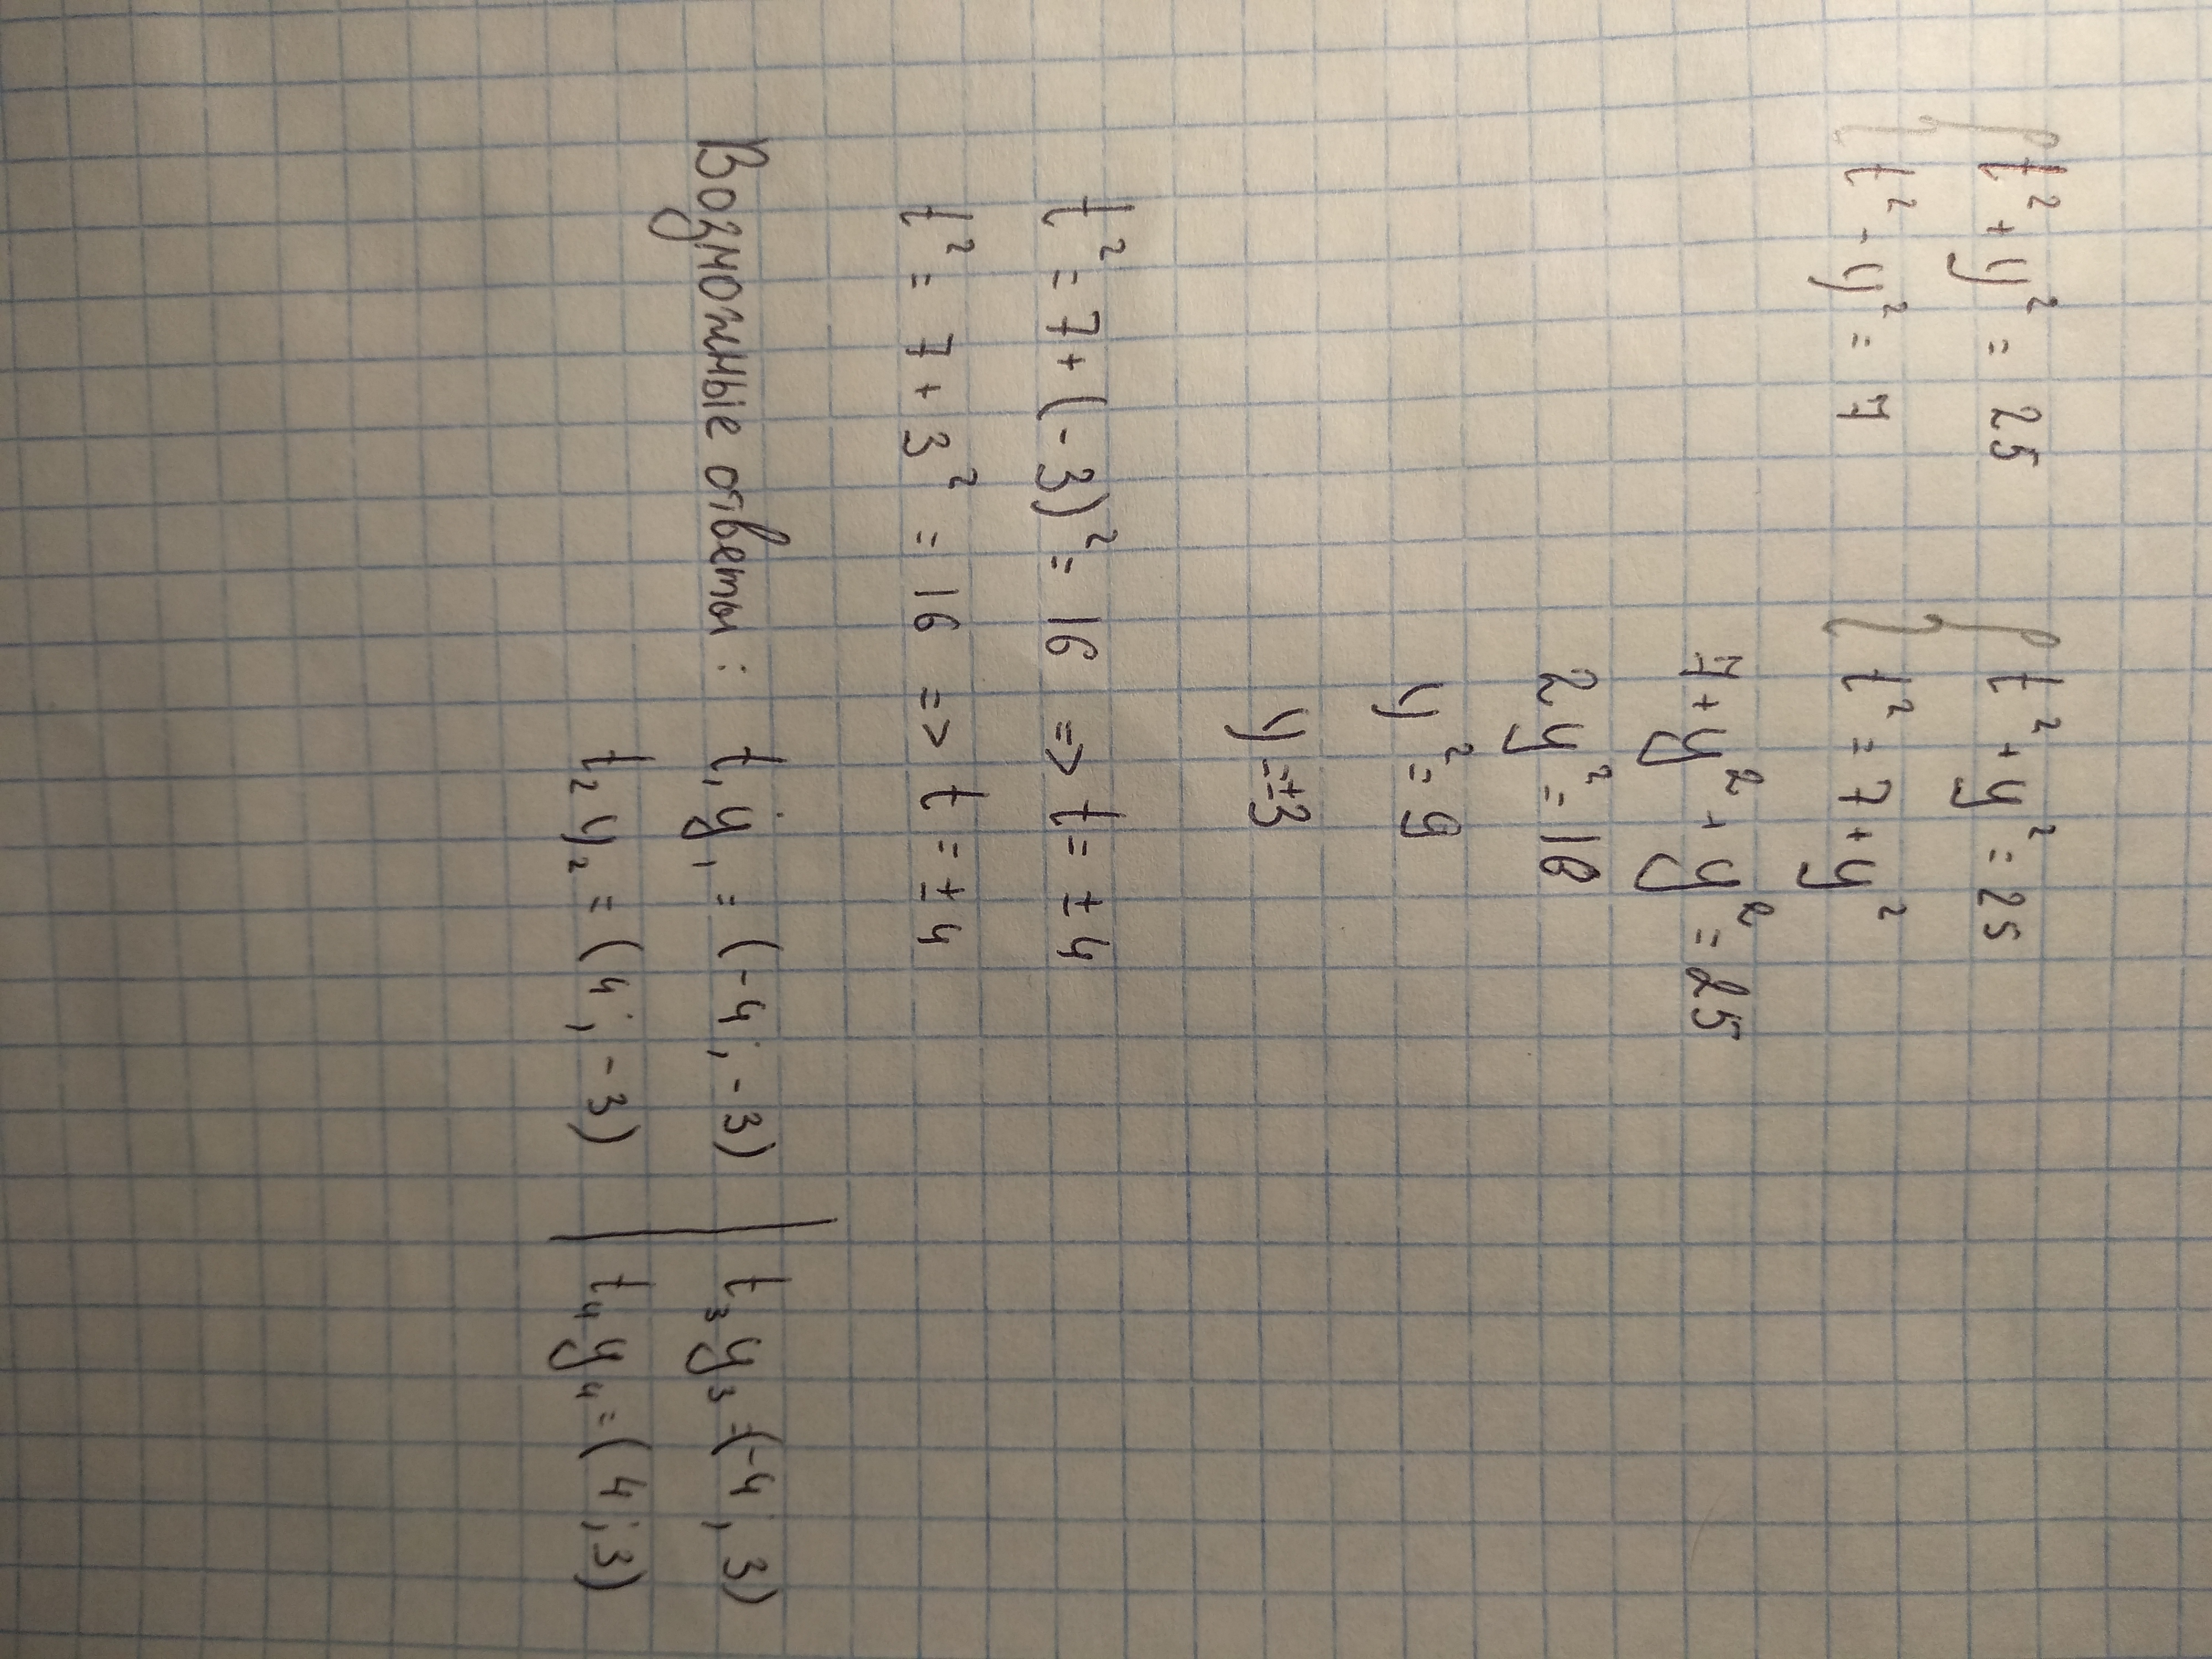 { t² + y² = 25
{ t² - y² = 7
{ t² + y² = 25
{ t² = 7 + y²
7 + y² + y² = 25
2y² = 18
y² = 9
y = ±3
t² = 7 + (-3)² = 16 => t = ±4
t² = 7 + 3² = 16 => t = ±4
Возможные ответы: t₁y₁ = (-4; -3) | t₃y₃ = (-4; 3)
t₂y₂ = (4; -3) | t₄y₄ = (4; 3)